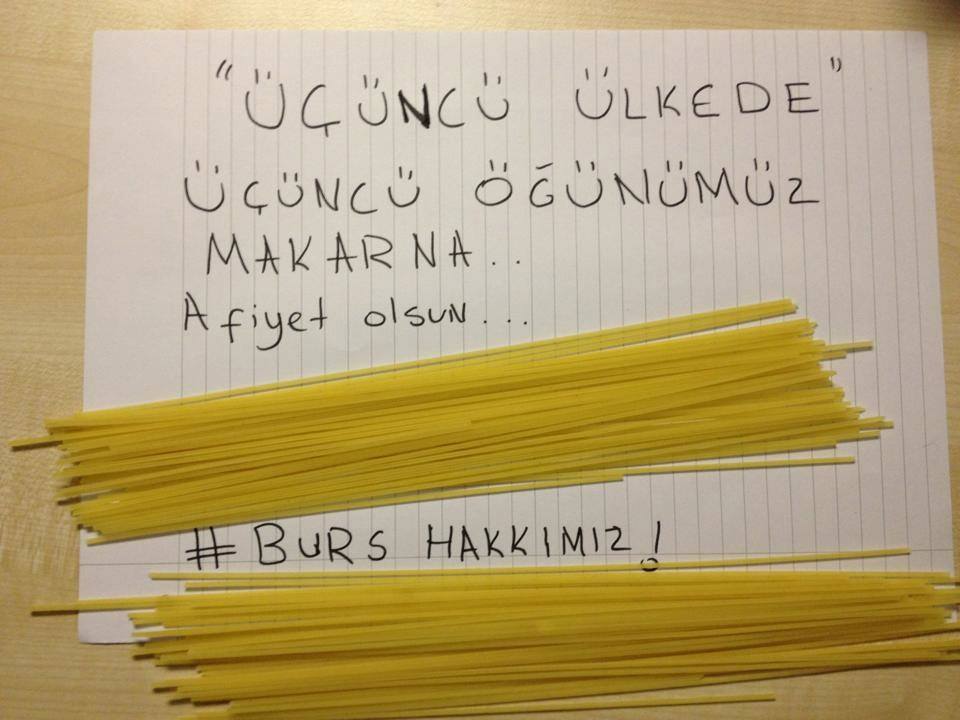 "ÜÇÜNCÜ ÜLKEDE"
ÜÇÜNCÜ ÖĞÜNÜMÜZ
MAKARNA..
Afiyet olsun...
# BURS HAKKIMIZ!